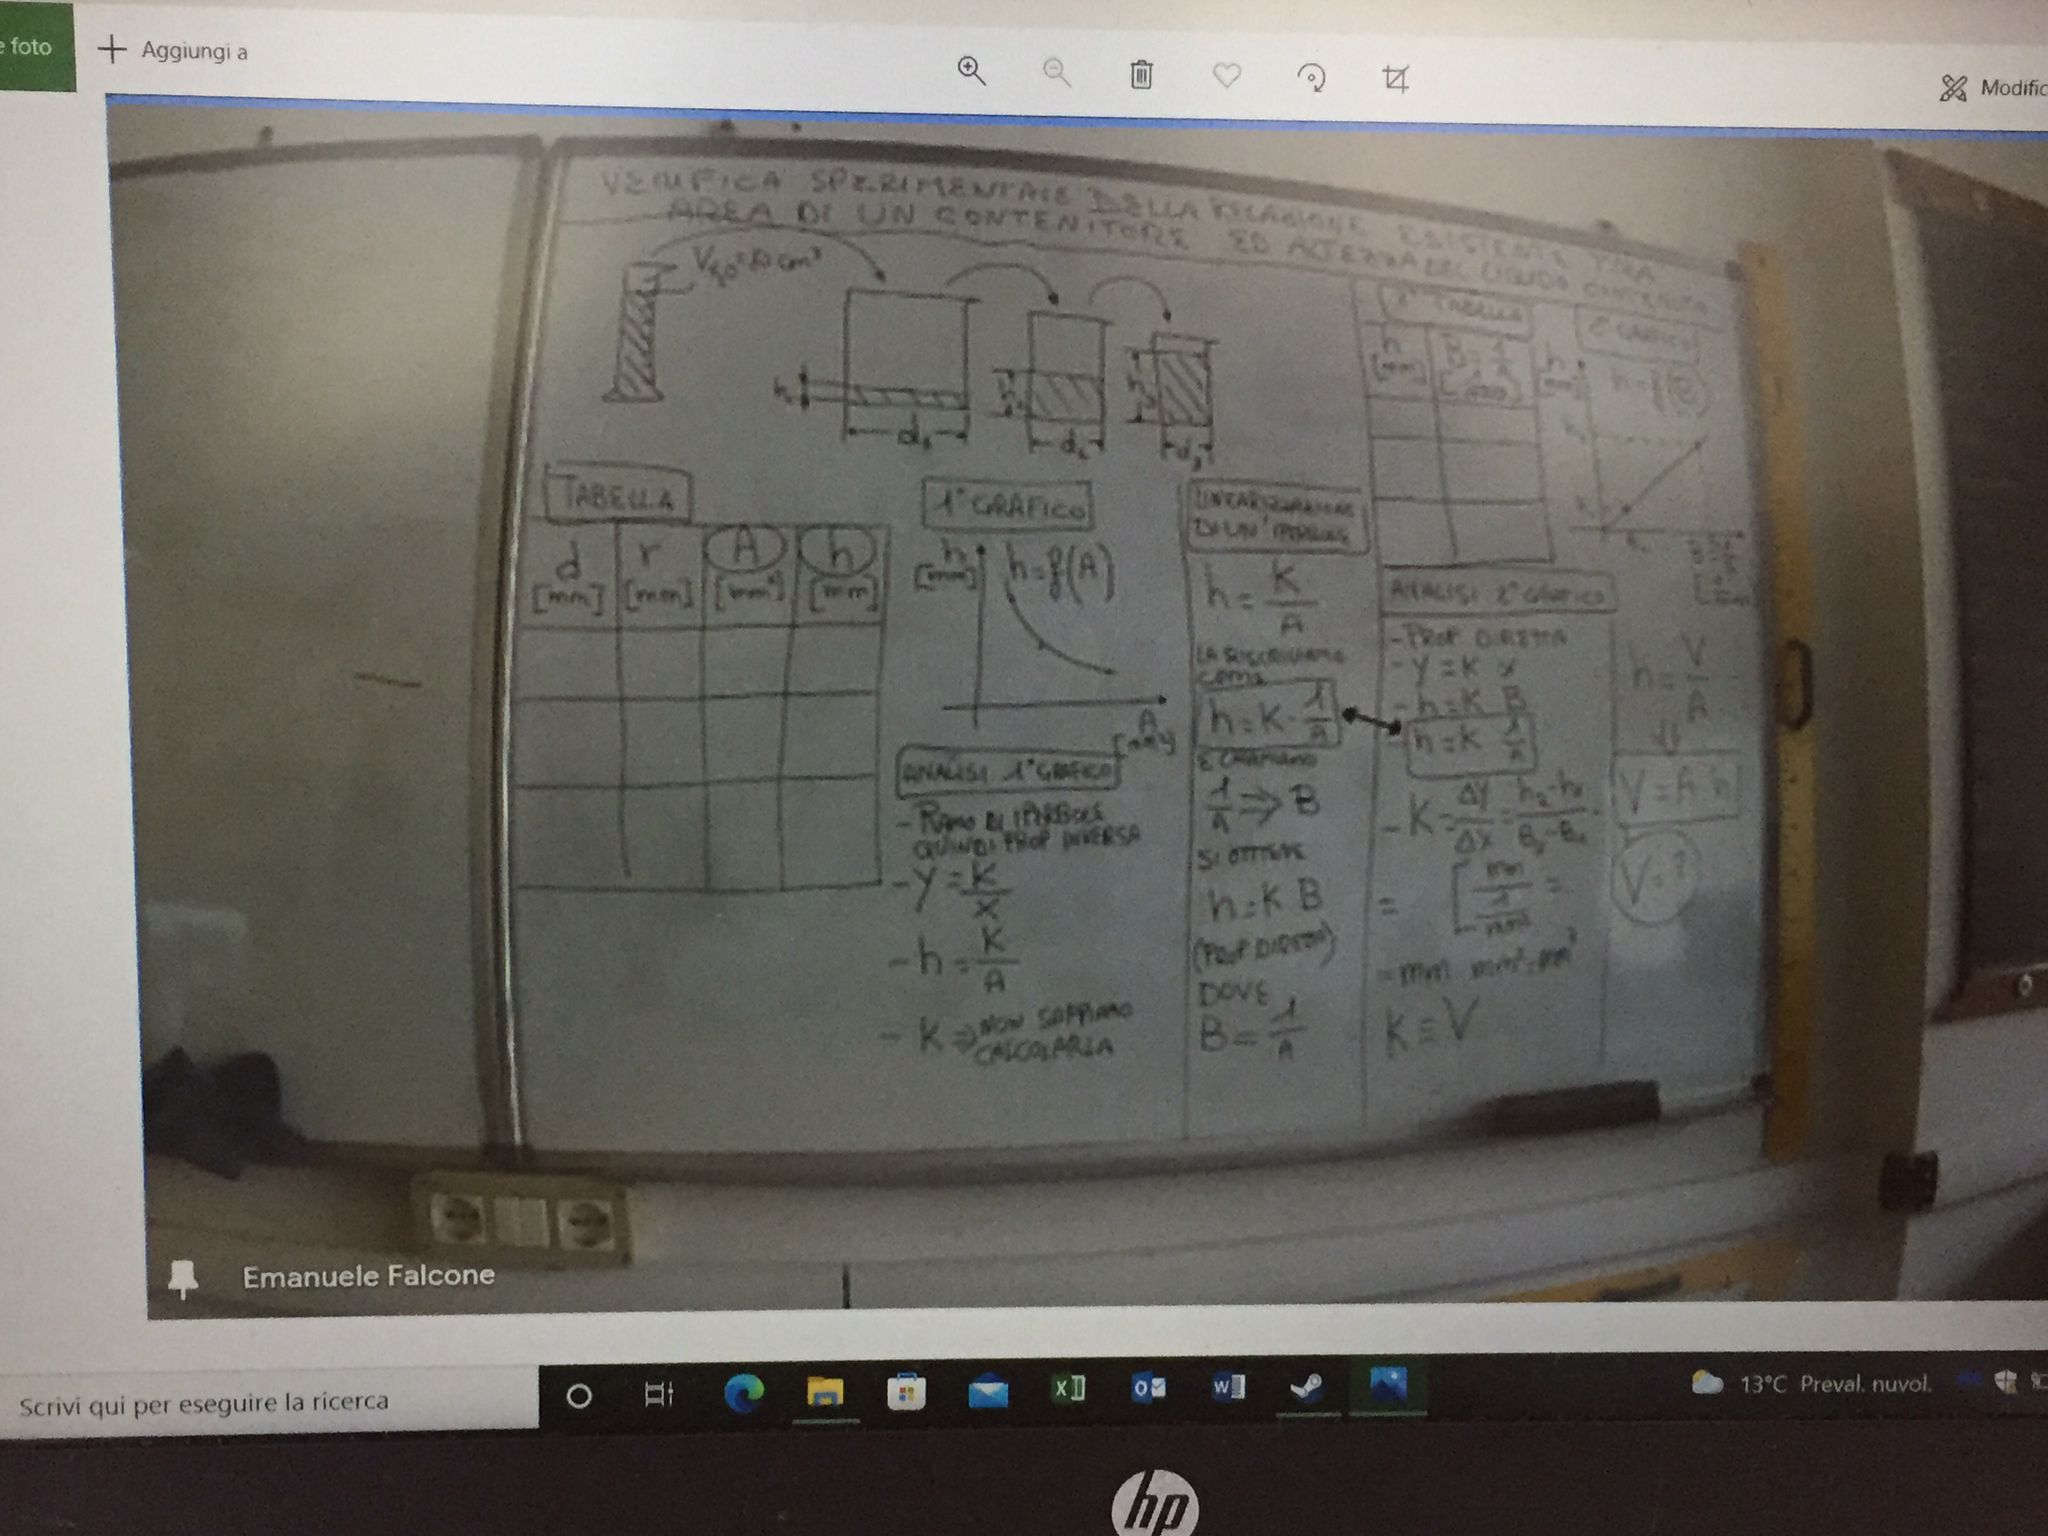 e foto
Aggiungi a
Modific
VERIFICA SPERIMENTALE DELLA RELAZIONE ESISTENTE TRA
AREA DI UN CONTENITORE ED ALTEZZA DEL LIQUIDO CONTENUTO
d₁
d₂
d₃
TABELLA
d
[mm]
r
[mm]
A
[mm²]
h
[mm]
1° GRAFICO
h
[mm]
h=f(A)
A
[mm²]
ANALISI 1° GRAFICO
- RAMO DI IPERBOLE
QUINDI PROP INVERSA
- y = K/x
- h = K/A
- K ⇒ NON SAPPIAMO
CALCOLARLA
LINEARIZZAZIONE
DI UN' IPERBOLE
h = K/A
LA RISCRIVIAMO
COME
h = K · 1/A
E CHIAMIAMO
1/A ⇒ B
SI OTTIENE
h = K B
(PROP DIRETTA)
DOVE
B = 1/A
2° TABELLA
h
[mm]
B = 1/A
2° GRAFICO
h
[mm]
ANALISI 2° GRAFICO
- PROP DIRETTA
- y = K x
- h = K B
- h = K 1/A
- K = Δy/Δx =
= mm mm² = mm³
K = V
h = V/A
⇓
V = A h
V = ?
Emanuele Falcone
Scrivi qui per eseguire la ricerca
13°C Preval. nuvol.
hp